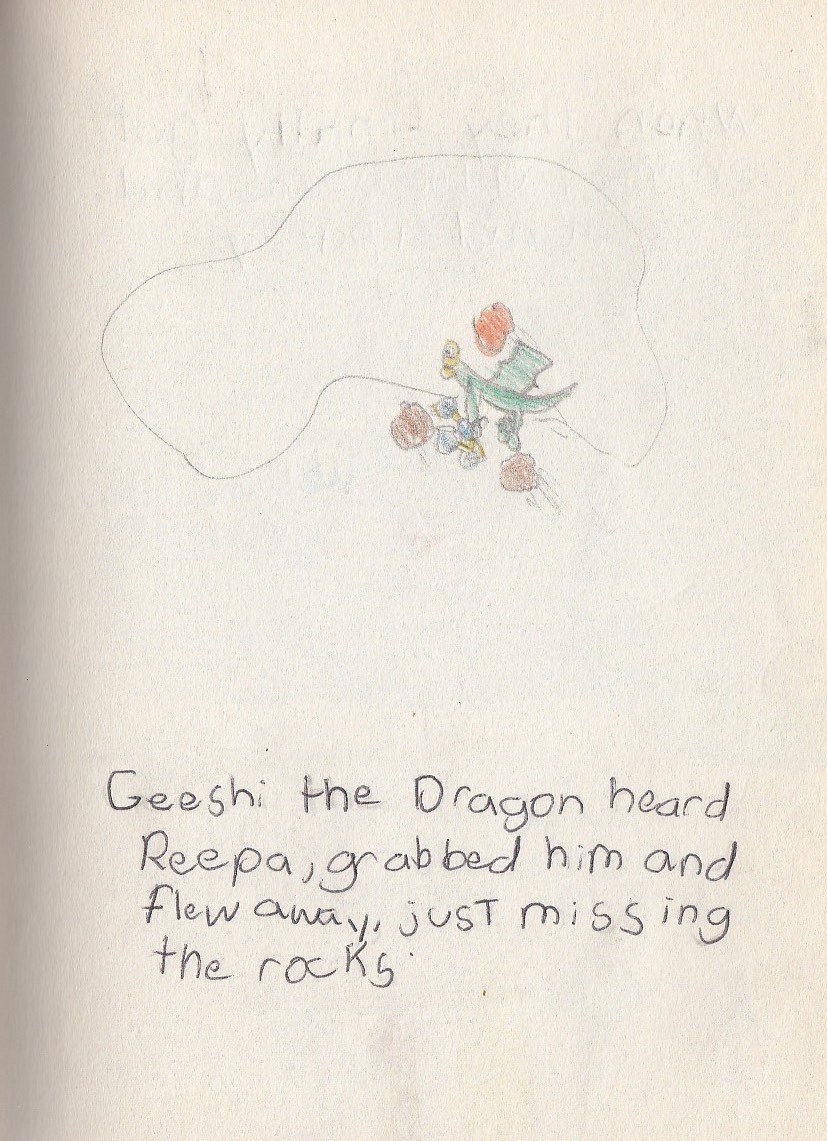 Geeshi the Dragon heard
Reepa, grabbed him and
flew away, just missing
the rocks.